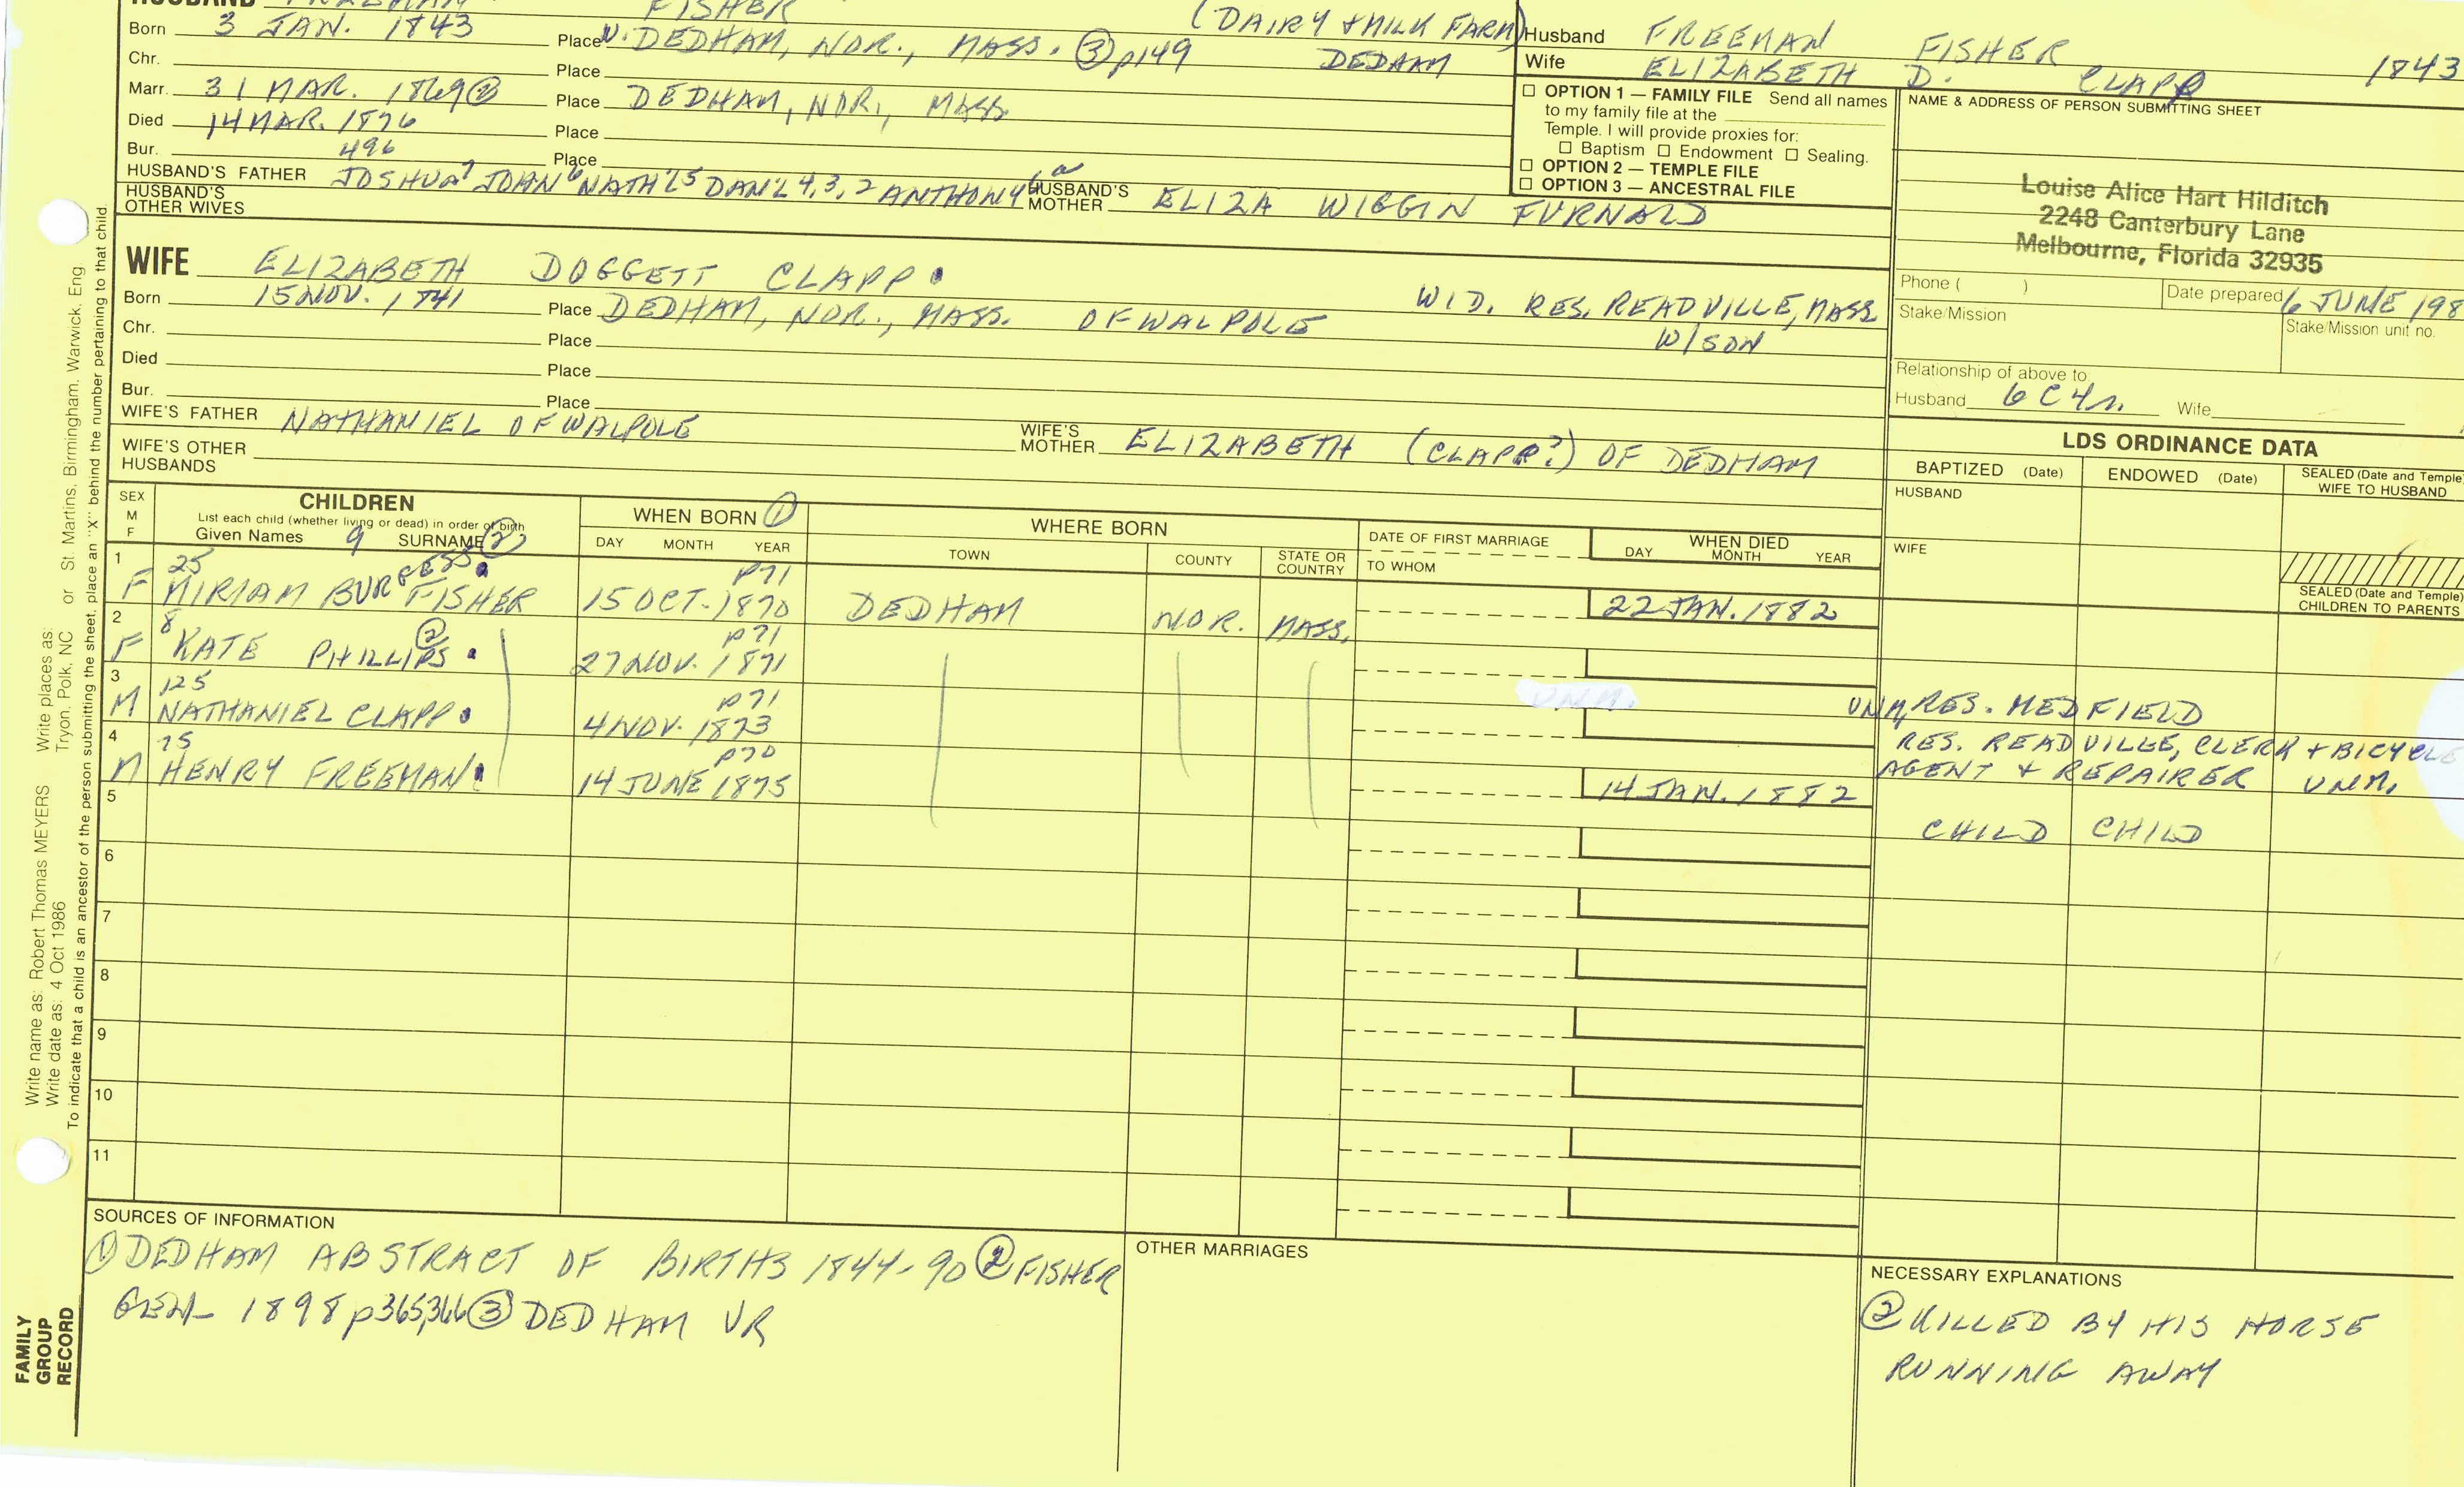 HUSBAND FREEMAN FISHER (DAIRY + MILK FARM)
Born 3 JAN. 1843 Place W. DEDHAM, NOR., MASS. ③ p149 DEDHAM
Chr. Place
Marr. 31 MAR. 1869 ② Place DEDHAM, NOR., MASS
Died 14 MAR. 1876 Place
Bur. 496 Place
HUSBAND'S FATHER JOSHUA7 JOHN6 NATH'L5 DAN'L 4,3,2 ANTHONY HUSBAND'S MOTHER ELIZA WIGGIN FURNALD
HUSBAND'S OTHER WIVES
Husband FREEMAN FISHER 1843
Wife ELIZABETH D. CLAPP
☐ OPTION 1 — FAMILY FILE Send all names
to my family file at the
Temple. I will provide proxies for:
☐ Baptism ☐ Endowment ☐ Sealing.
☐ OPTION 2 — TEMPLE FILE
☐ OPTION 3 — ANCESTRAL FILE
NAME & ADDRESS OF PERSON SUBMITTING SHEET
Louise Alice Hart Hilditch
2248 Canterbury Lane
Melbourne, Florida 32935
Phone ( ) Date prepared 6 JUNE 198
Stake/Mission Stake/Mission unit no.
Relationship of above to
Husband 6C4r. Wife
WIFE ELIZABETH DOGGETT CLAPP
Born 15 NOV. 1841 Place DEDHAM, NOR., MASS. OF WALPOLE WID. RES. READVILLE, MASS
Chr. Place W/SON
Died Place
Bur. Place
WIFE'S FATHER NATHANIEL OF WALPOLE WIFE'S MOTHER ELIZABETH (CLAPP?) OF DEDHAM
WIFE'S OTHER HUSBANDS
LDS ORDINANCE DATA
BAPTIZED (Date) ENDOWED (Date) SEALED (Date and Temple) WIFE TO HUSBAND
HUSBAND
WIFE
SEALED (Date and Temple) CHILDREN TO PARENTS
SEX M F
CHILDREN
List each child (whether living or dead) in order of birth
Given Names 9 SURNAME ②
WHEN BORN ①
DAY MONTH YEAR
WHERE BORN
TOWN COUNTY STATE OR COUNTRY
DATE OF FIRST MARRIAGE
TO WHOM
WHEN DIED
DAY MONTH YEAR
1 25 p71
F MIRIAM BURGESS FISHER 15 OCT. 1870 DEDHAM NOR. MASS. 22 JAN. 1882
2 8 ② p71
F KATE PHILLIPS 27 NOV. 1871 UNM, RES. MEDFIELD
3 125 p71
M NATHANIEL CLAPP 4 NOV. 1873 RES. READVILLE, CLERK + BICYCLE
AGENT + REPAIRER UNM.
4 75 p70
M HENRY FREEMAN 14 JUNE 1875 14 JAN. 1882 CHILD CHILD
5
6
7
8
9
10
11
SOURCES OF INFORMATION
① DEDHAM ABSTRACT OF BIRTHS 1844-90 ② FISHER
GEN 1898 p365,366 ③ DEDHAM VR
OTHER MARRIAGES
NECESSARY EXPLANATIONS
② KILLED BY HIS HORSE
RUNNING AWAY
Write name as: Robert Thomas MEYERS Write places as:
Write date as: 4 Oct 1986 Tryon, Polk, NC or St. Martins, Birmingham, Warwick, Eng.
To indicate that a child is an ancestor of the person submitting the sheet, place an "X" behind the number pertaining to that child.
FAMILY
GROUP
RECORD